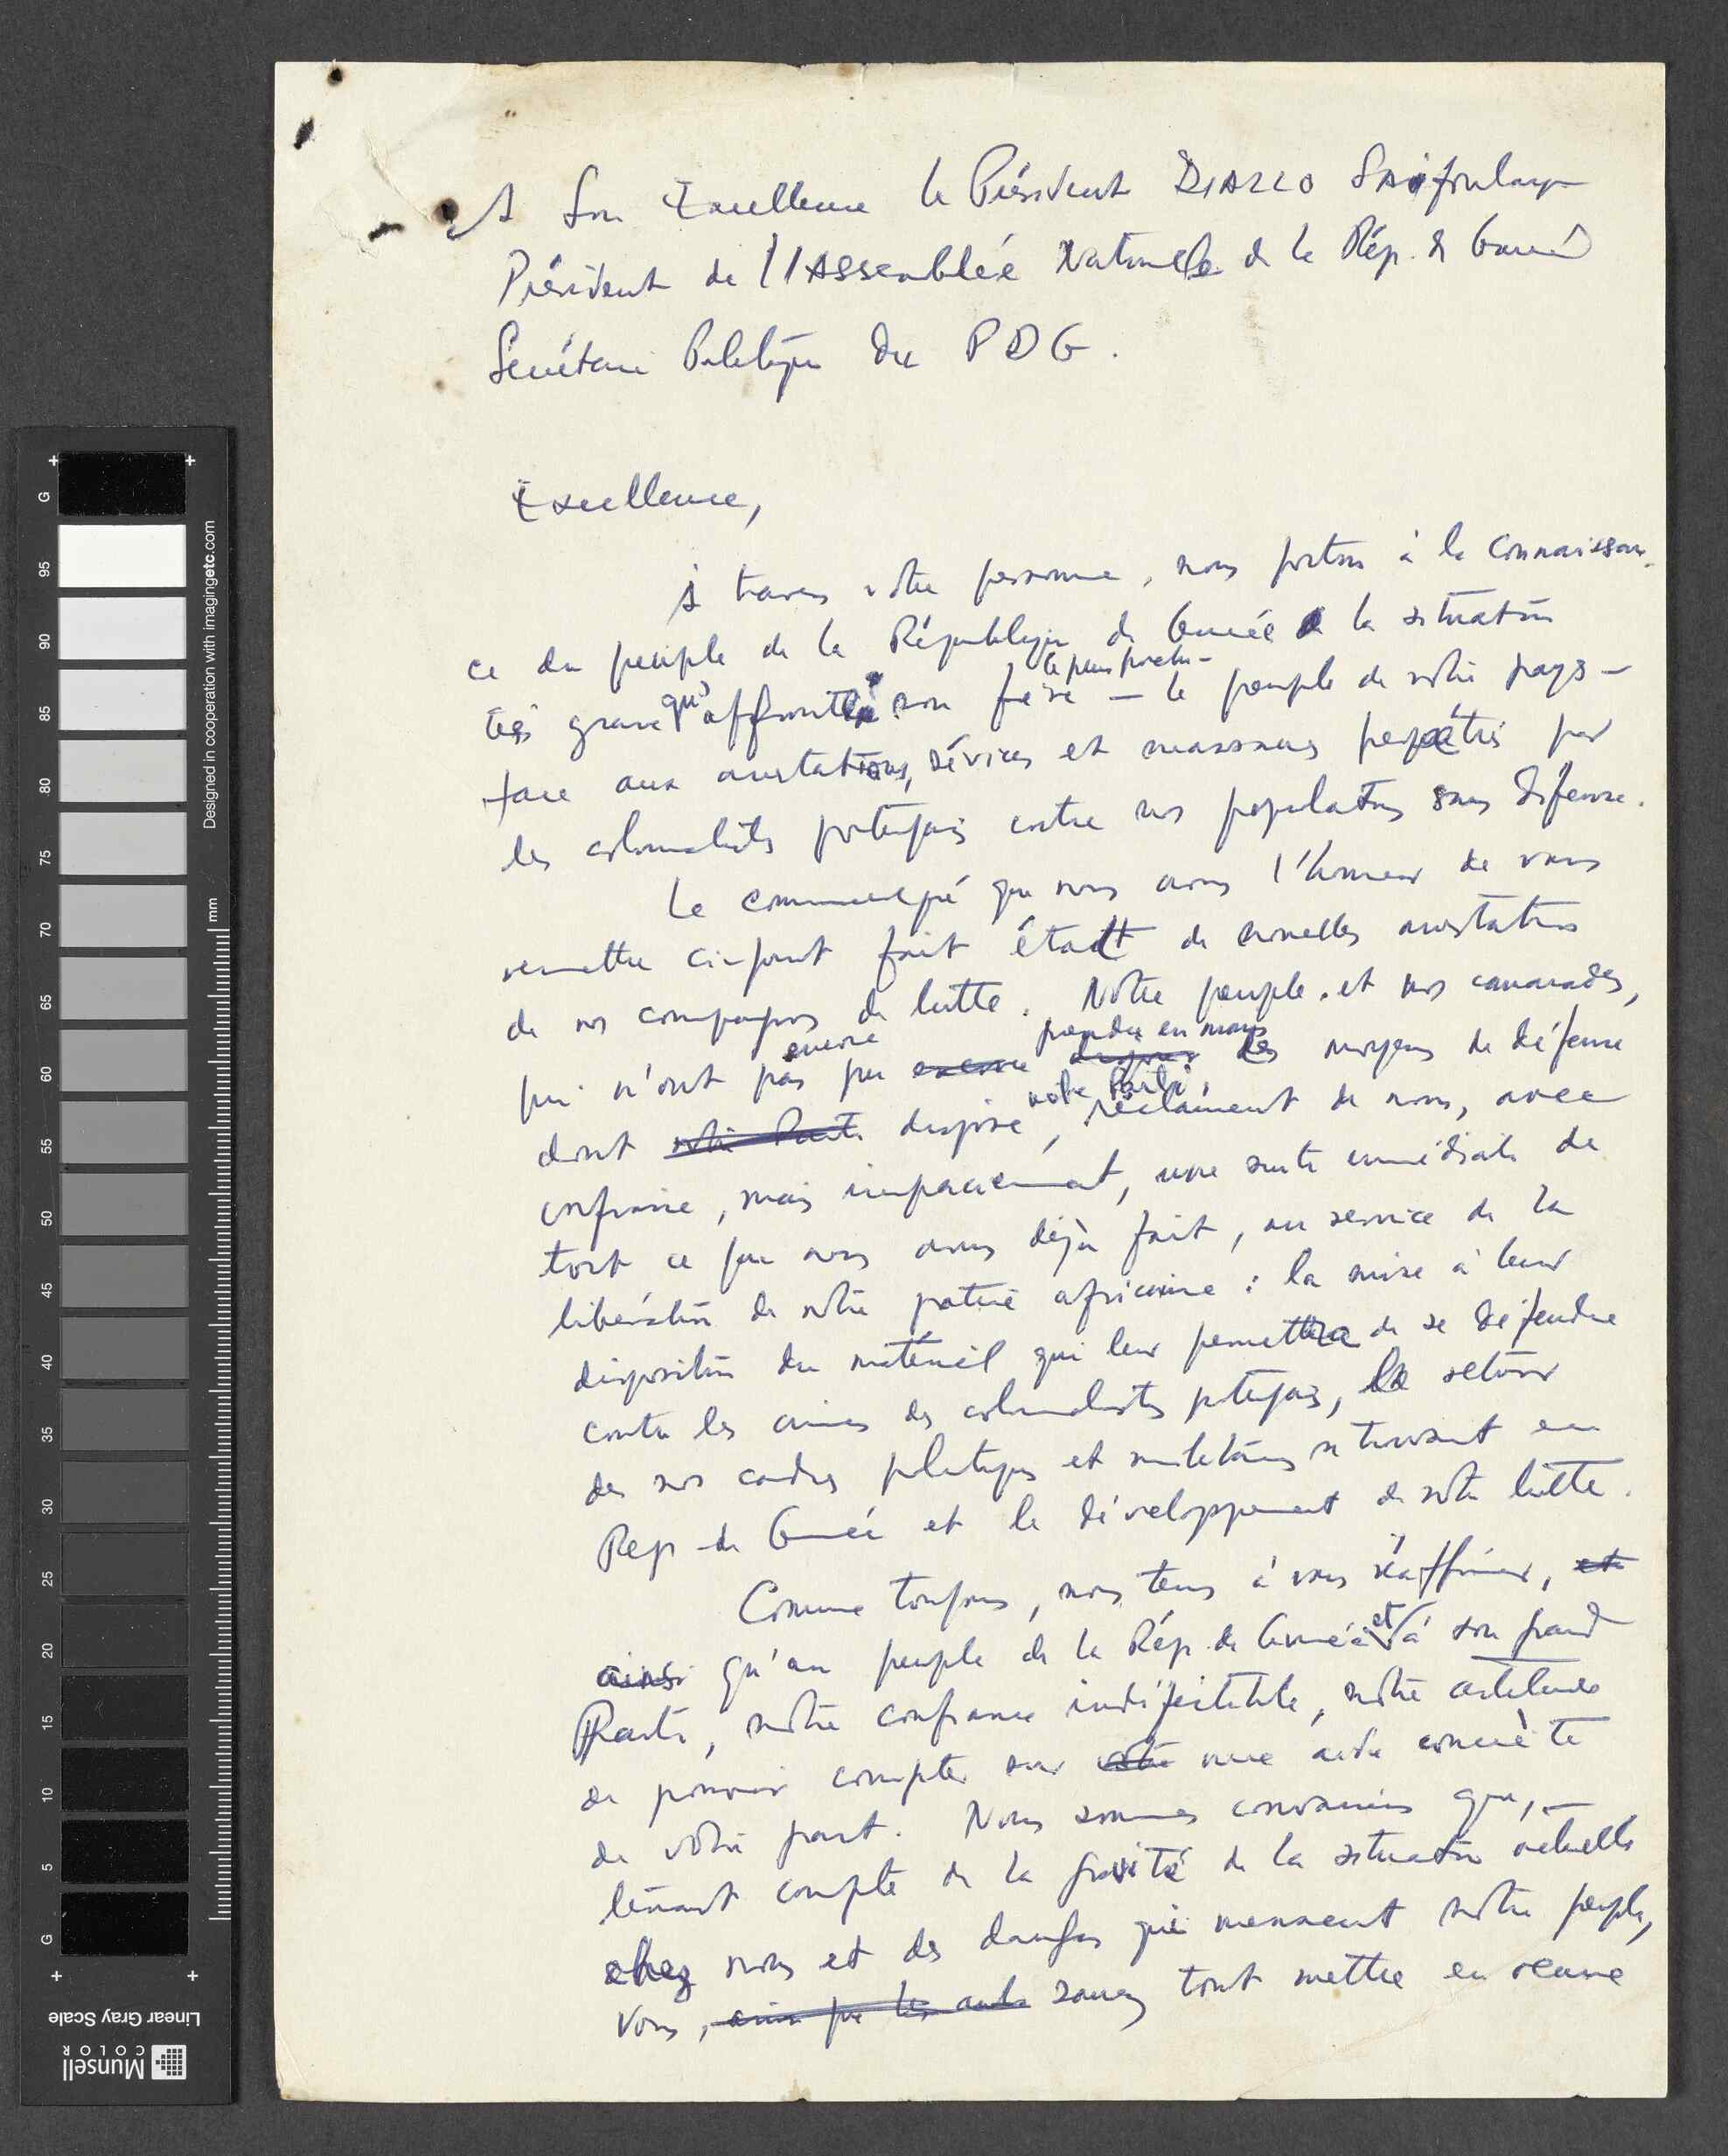 A Son Excellence le Président DIALLO Saifoulaye
Président de l'Assemblée Nationale de la Rép. de Guinée
Secrétaire Politique du PDG.
Excellence,
A travers votre personne, nous portons à la connaissan-
ce du peuple de la République de Guinée la situation
très grave qu'affronte son frère le plus proche - le peuple de notre pays -
face aux arrestations, sévices et massacres perpétrés par
les colonialistes portugais contre nos populations sans défense.
Le communiqué que nous avons l'honneur de vous
remettre ci-joint fait état de nouvelles arrestations
de nos compagnons de lutte. Notre peuple et nos camarades,
qui n'ont pas encore pu encore prendre en mains les moyens de défense
dont notre Parti dispose notre Parti, réclament de nous, avec
confiance, mais impatiemment, une suite immédiate de
tout ce que nous avons déjà fait, au service de la
libération de notre patrie africaine : la mise à leur
disposition du matériel qui leur permettra de se défendre
contre les crimes des colonialistes portugais, le retour
de nos cadres politiques et militaires se trouvant en
Rep de Guinée et le développement de notre lutte.
Comme toujours, nous tenons à vous réaffirmer, et
ainsi qu'au peuple de la Rép. de Guinée et à son grand
Parti, notre confiance indéfectible, notre certitude
de pouvoir compter sur votre une aide concrète
de votre part. Nous sommes convaincus que, -
tenant compte de la gravité de la situation actuelle
chez nous et des dangers qui menacent notre peuple,
Vous, ainsi que les autres saurez tout mettre en oeuvre
G
95
90
85
80
75
70
65
60
55
50
45
40
35
30
25
20
15
10
5
G
mm
Designed in cooperation with imagingetc.com
Linear Gray Scale
Munsell
COLOR